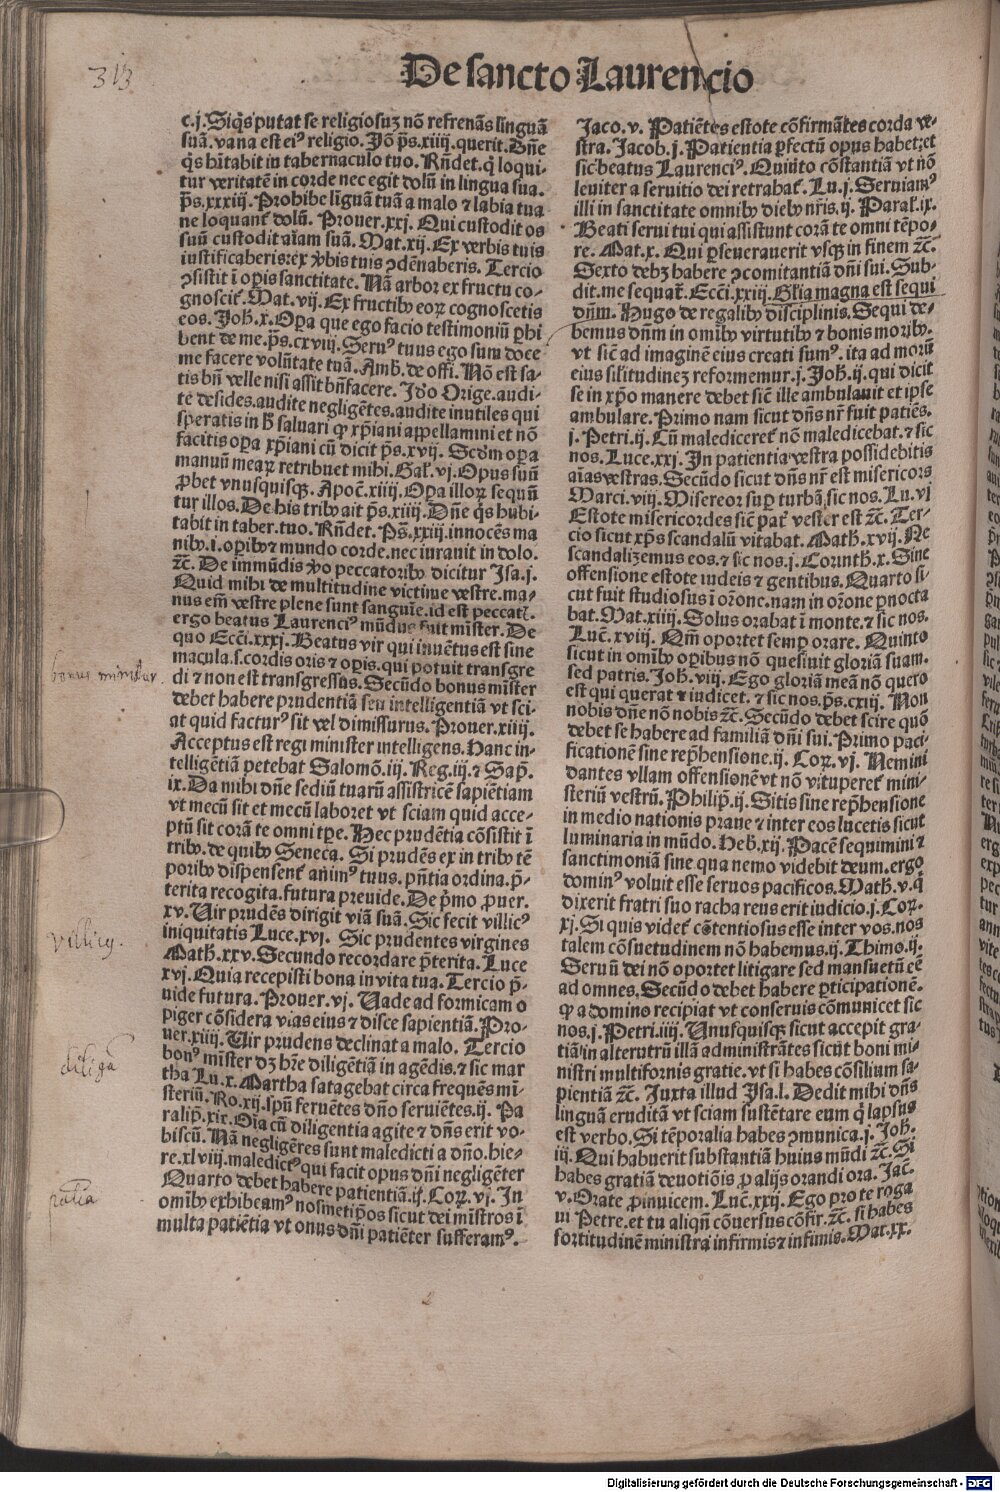 313
De sancto Laurencio
c.j. Siq̄s putat se religiosuꝫ nō refrenās linguā
suā. vana est eiꝰ religio. Jō p̄s.xiiij.querit. Dn̄e
q̄s h̄itabit in tabernaculo tuo. Rn̄det. q̄ loqui-
tur veritatē in corde nec egit dolū in lingua sua.
p̄s.xxxiij. Prohibe linguā tuā a malo ⁊ labia tua
ne loquant᷑ dolū. Prouer.xxj. Qui custodit os
suū custodit aīam suā. Mat.xij. Ex verbis tuis
iustificaberis:⁊ex v̄bis tuis ꝯdēnaberis. Tercio
ꝯsistit ī oꝑis sanctitate. Nā arbor ex fructu co-
gnoscit᷑. Mat. vij. Ex fructibꝰ eoꝝ cognoscetis
eos. Joh̄.x. Oꝑa que ego facio testimoniū ꝑhi
bent de me. p̄s.cxviij. Seruꝰ tuus ego sum doce
me facere volūtate tuā. Amb̄. de offi. Nō est sa-
tis bn̄ velle nisi assit bn̄facere. Jdʼo Orige. audi-
te desides. audite negligētes. audite inutiles qui
speratis in h̄ saluari ꝙ xp̄iani appellamini et nō
facitis oꝑa xp̄iani cū dicit p̄s.xvij. Scdʼm oꝑa
manuū meaꝝ retribuet mihi. Gal̄. vj. Opus suū
ꝓbet vnusquisqꝫ. Apoc̄.xiiij. Oꝑa illoꝝ sequūtur illos. De his tribꝰ ait p̄s.xiiij. Dn̄e q̄s habi-
tabit in taber.tuo. Rn̄det. Ps̄.xxiij.innocēs ma
nibꝰ.i.oꝑibꝰ⁊ mundo corde. nec iurauit in dolo.
⁊c̄. De immūdis v̄o peccatoribꝰ dicitur Jsa.j.
Quid mihi de multitudine victime vestre. ma-
nus em̄ vestre plene sunt sanguīe. id est peccatꝭ.
ergo beatus Laurenciꝰ mūdus fuit mīster. De
quo Ecc̄i.xxxj. Beatus vir qui inuētus est sine
macula.s.cordis oris ⁊ oꝑis. qui potuit transgre
di ⁊ non est transgressus. Secūdo bonus mīster
debet habere prudentiā seu intelligentiā vt sci-
at quid facturꝰ sit vel dimissurus. Prouer.xiiij.
Acceptus est regi minister intelligens. Hanc in-
telligētiā petebat Salomō. iij. Reg. iij. ⁊ Sap̄.
ix. Da mihi dn̄e sediū tuarū assistricē sapiētiam
vt mecū sit et mecū laboret vt sciam quid acce-
ptū sit corā te omni tꝑe. Hec prudētia cōsistit ī
tribꝰ. de quibꝰ Seneca. Si prudēs ex in tribꝰ tē
poribꝰ dispensent᷑ animꝰ tuus. pn̄tia ordina. p̄-
terita recogita. futura preuide. De p̄mo ꝓuer.
xv. Uir prudēs dirigit viā suā. Sic fecit villicꝰ
iniquitatis Luce.xvj. Sic prudentes virgines
Math̄.xxv. Secundo recordare p̄terita. Luce
xvj. Quia recepisti bona in vita tua. Tercio p̄-
uide futura. Prouer. vj. Uade ad formicam o
piger cōsidera vias eius ⁊ disce sapientiā. Pro-
uer.xiiij. Uir prudens declinat a malo. Tercio
bonꝰ mīster dꝫ hr̄e diligētiā in agēdis. ⁊ sic mar
tha Lu.x. Martha satagebat circa frequēs mī-
steriū. Ro.xij. spū feruētes dn̄o seruiētes. ij. Pa
ralip̄.xix. Oīa cū diligentia agite ⁊ dn̄s erit vo-
biscū. Nā negligēres sunt maledicti a dn̄o. hie-
re.xlviij.maledictꝰ qui facit opus dn̄i negligēter
Quarto debet habere patientiā. ij. Coꝝ. vj. Jn
omībꝰ exhibeamꝰ nosmetip̄os sicut dei mīstros ī
multa patiētia vt onus dn̄i patiēter sufferamꝰ.
Jaco. v. Patiētes estote cōfirmātes corda ve-
stra. Jacob. j. Patientia ꝑfectū opus habet:⁊et
sic beatus Laurenciꝰ. Quinto cōstantiā vt nō
leuiter a seruitio dei retrahat᷑. Lu. j. Seruiamꝰ
illi in sanctitate omnibꝰ diebꝰ nr̄is. ij. Paral̄. ix.
Beati serui tui qui assistunt corā te omni tēpo-
re. Mat.x. Qui ꝑseuerauerit vsqꝫ in finem ⁊c̄.
Sexto debꝫ habere ꝯcomitantiā dn̄i sui. Sub-
dit. me sequat᷑. Ecc̄i.xxiij. Gl̄ia magna est sequi
dn̄m. Hugo de regalibꝰ disciplinis. Sequi de-
bemus dn̄m in omībꝰ virtutibꝰ ⁊ bonis moribꝰ.
vt sic̄ ad imaginē eius creati sumꝰ. ita ad morū
eius sil̄itudineꝫ reformemur. j. Joh̄. ij. qui dicit
se in xp̄o manere debet sic̄ ille ambulauit et ipse
ambulare. Primo nam sicut dn̄s nr̄ fuit patiēs.
j. Petri. ij. Cū malediceret᷑ nō maledicebat. ⁊ sic
nos. Luce.xxj. Jn patientia vestra possidebitis
aīas vestras. Secūdo sicut dn̄s nr̄ est misericors
Marci. viij. Misereor suꝑ turbā, sic nos. Lu. vj
Estote misericordes sic̄ pat᷑ vester est ⁊c̄. Ter-
cio sicut xp̄s scandalū vitabat. Math̄.xvij. Ne
scandalizemus eos. ⁊ sic nos. j. Corinth̄.x. Sine
offensione estote iudeis ⁊ gentibus. Quarto si-
cut fuit studiosus ī or̄one. nam in or̄one ꝑnocta
bat. Mat.xiiij. Solus orabat ī monte. ⁊ sic nos.
Luc̄.xviij. Qm̄ oportet semꝑ orare. Quinto
sicut in omībꝰ oꝑibus nō quesiuit gloriā suam.
sed patris. Joh̄. viij. Ego gloriā meā nō quero
est qui querat ⁊ iudicet. ⁊ sic nos. p̄s.cxiij. Non
nobis dn̄e nō nobis ⁊c̄. Secūdo debet scire quō
debet se habere ad familiā dn̄i sui. Primo paci-
ficationē sine rep̄hensione. ij. Coꝝ. vj. Nemini
dantes vllam offensionē vt nō vituperet᷑ mini-
steriū vestrū. Philip̄. ij. Sitis sine rep̄hensione
in medio nationis praue ⁊ inter eos lucetis sicut
luminaria in mūdo. Heb̄.xij. Pacē sequimini ⁊
sanctimoniā sine qua nemo videbit deum. ergo
dominꝰ voluit esse seruos pacificos. Math̄. v. q̄
dixerit fratri suo racha reus erit iudicio. j. Coꝝ.
xj. Si quis videt᷑ cōtentiosus esse inter vos. nos
talem cōsuetudinem nō habemus. ij. Thimo. ij.
Seruū dei nō oportet litigare sed mansuetū eē
ad omnes. Secūdo debet habere ꝑticipationē.
ꝙ a domino recipiat vt conseruis cōmunicet sic
nos. j. Petri. iiij. Unusquisqꝫ sicut accepit gra-
tiā in alterutrū illā administrātes sicut boni mi-
nistri multiformis gratie. vt si habes cōsilium sa-
pientiā ⁊c̄. Juxta illud Jsa. l. Dedit mihi dn̄s
linguā eruditā vt sciam sustētare eum q̄ lapsus
est verbo. Si tēporalia habes ꝯmunica. j. Joh̄.
iij. Qui habuerit substantiā huius mūdi ⁊c̄. Si
habes gratiā deuotiōis ꝓ alijs orandi ora. Jac̄.
v. Orate ꝓinuicem. Luc̄.xxij. Ego pro te roga
ui Petre. et tu aliqn̄ cōuersus cōfir. ⁊c̄. si habes
fortitudinē ministra infirmis ⁊ infimis. Mat.xx.
bonus minister.
villicꝰ.
diligē̄
patiēa
Digitalisierung gefördert durch die Deutsche Forschungsgemeinschaft - DFG